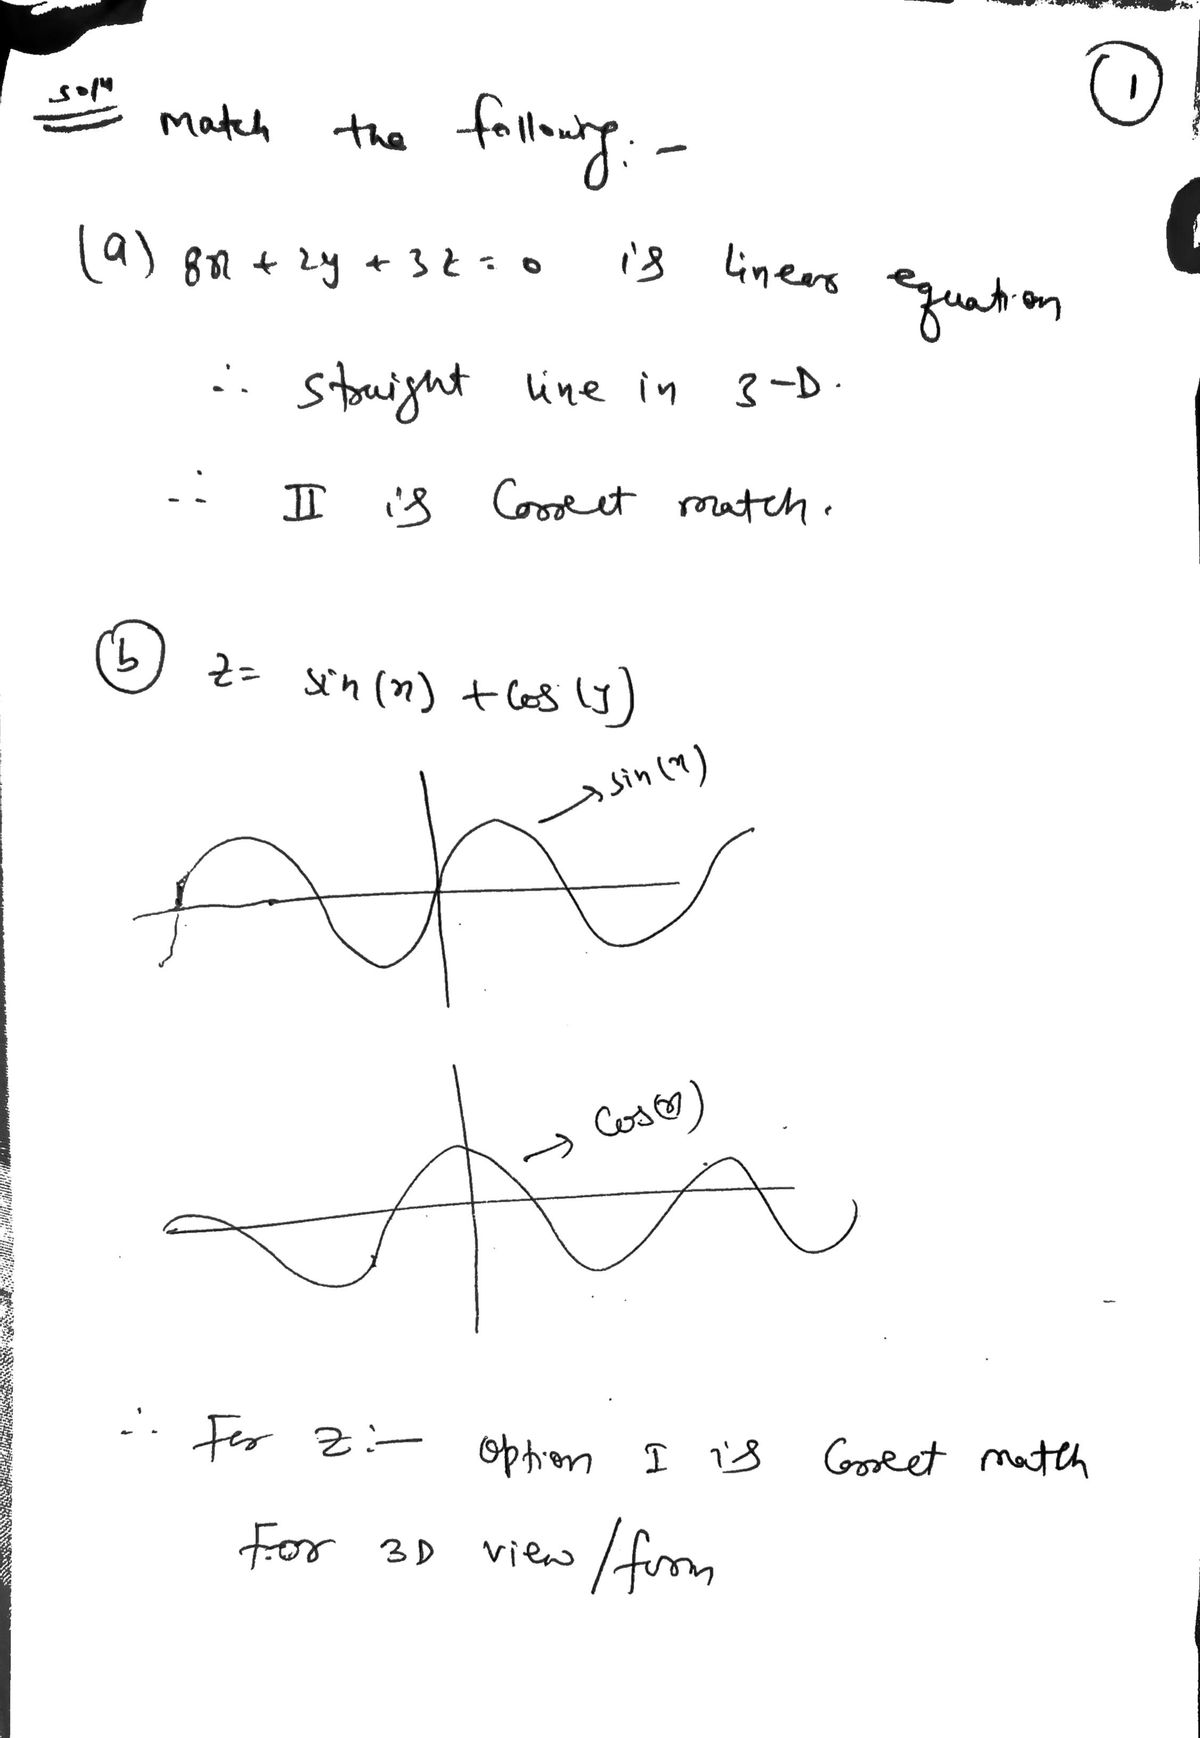 Soln
①
Match the following:-
(a) 8x + 2y + 3z = 0 is linear equation
∴ straight line in 3-D.
∴ II is Correct match.
ⓑ z = sin(x) + cos(y)
→ sin(x)
→ cos(x)
∴ For z:- option I is Correct match
For 3D view/form